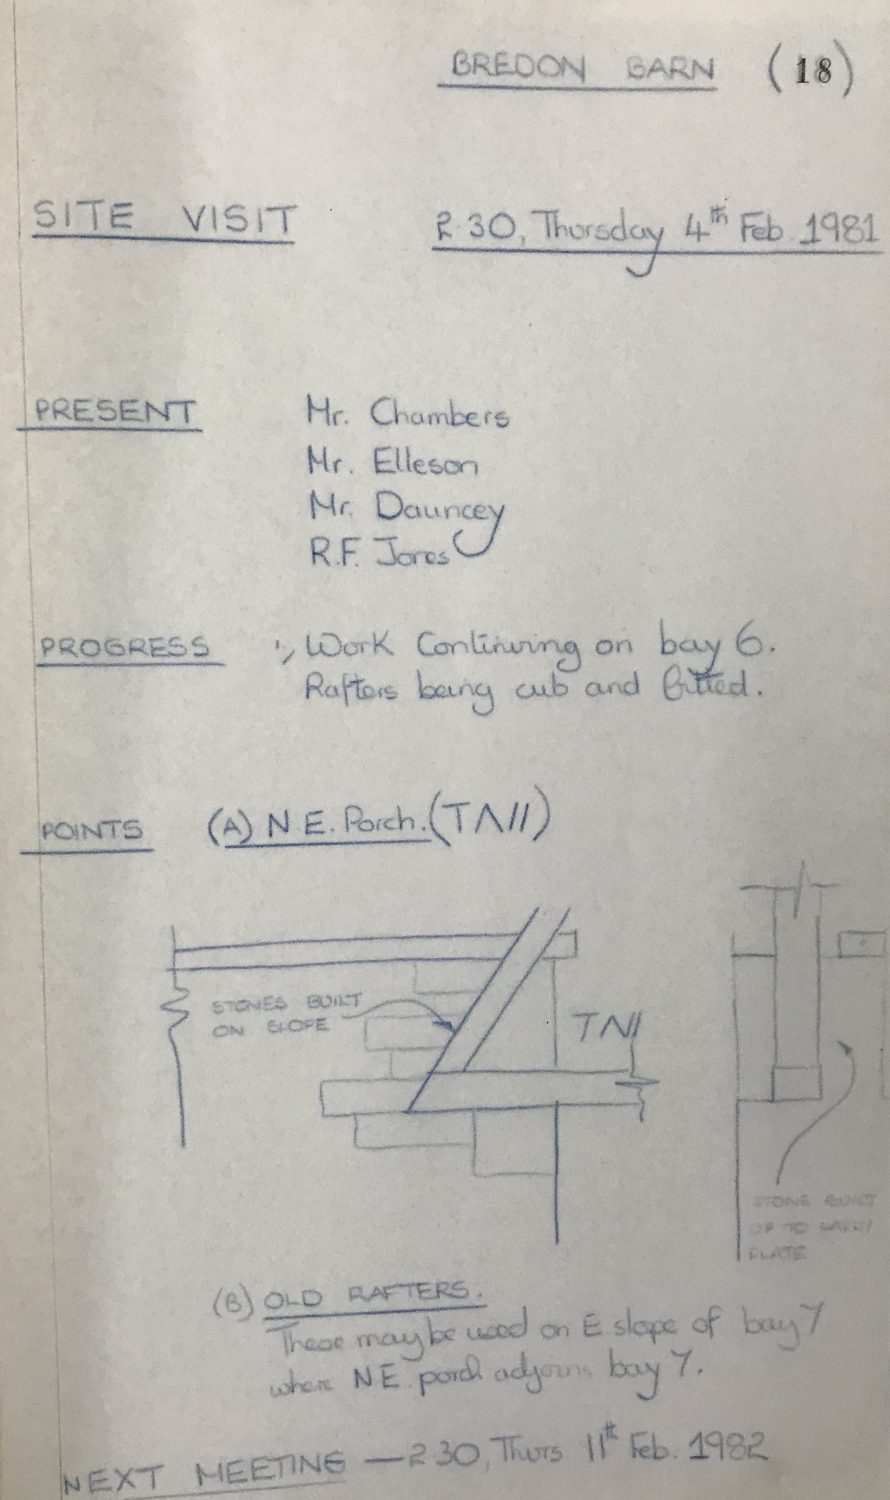 BREDON BARN (18)
SITE VISIT 2.30, Thursday 4th Feb 1981
PRESENT Mr. Chambers
Mr. Elleson
Mr. Dauncey
R.F. Jones
PROGRESS Work Continuing on bay 6.
Rafters being cub and fitted.
POINTS (A) N.E. Porch. (T/\II)
STONES BUILT
ON SLOPE
T/\II
STONE BUILT
UP TO CARRY
PLATE
(B) OLD RAFTERS.
These may be used on E slope of bay 7
where NE porch adjoins bay 7.
NEXT MEETING — 2.30, Thurs 11th Feb. 1982